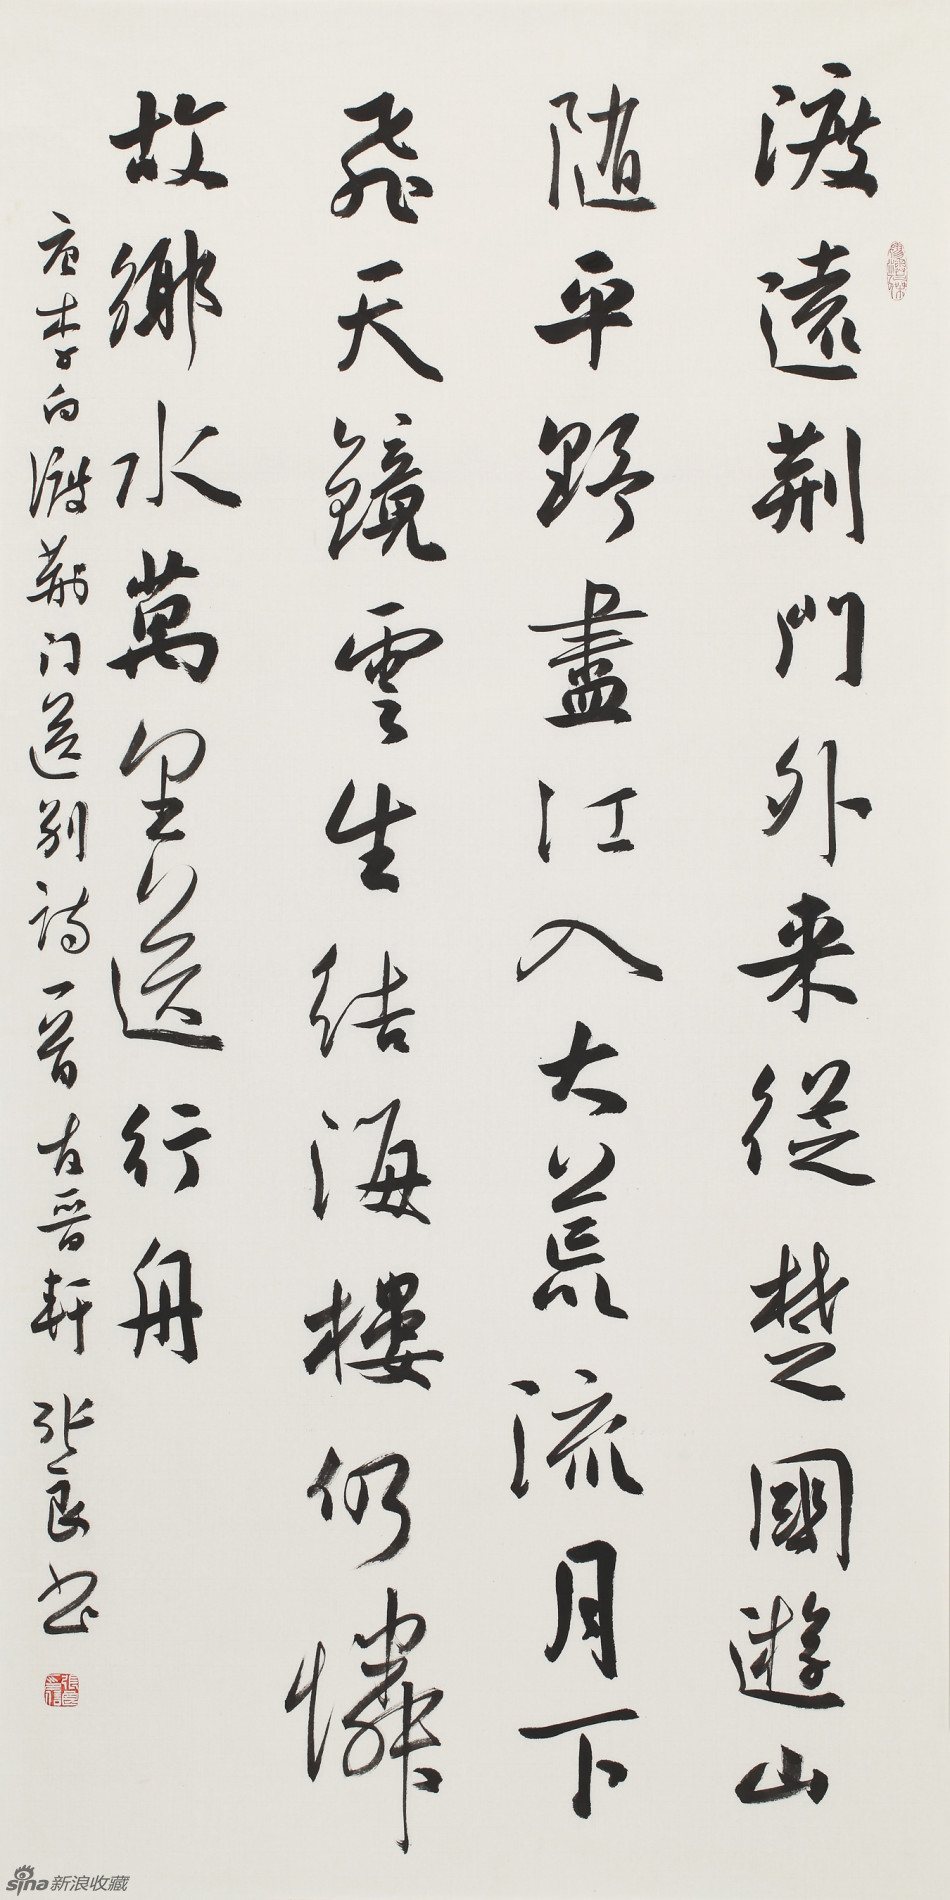 渡遠荆門外来從楚國遊山
随平野盡江入大荒流月下
飛天鏡雲生結海樓仍憐
故鄉水萬里送行舟
唐李白渡荆门送别诗一首 古晋轩 张良书
sina新浪收藏